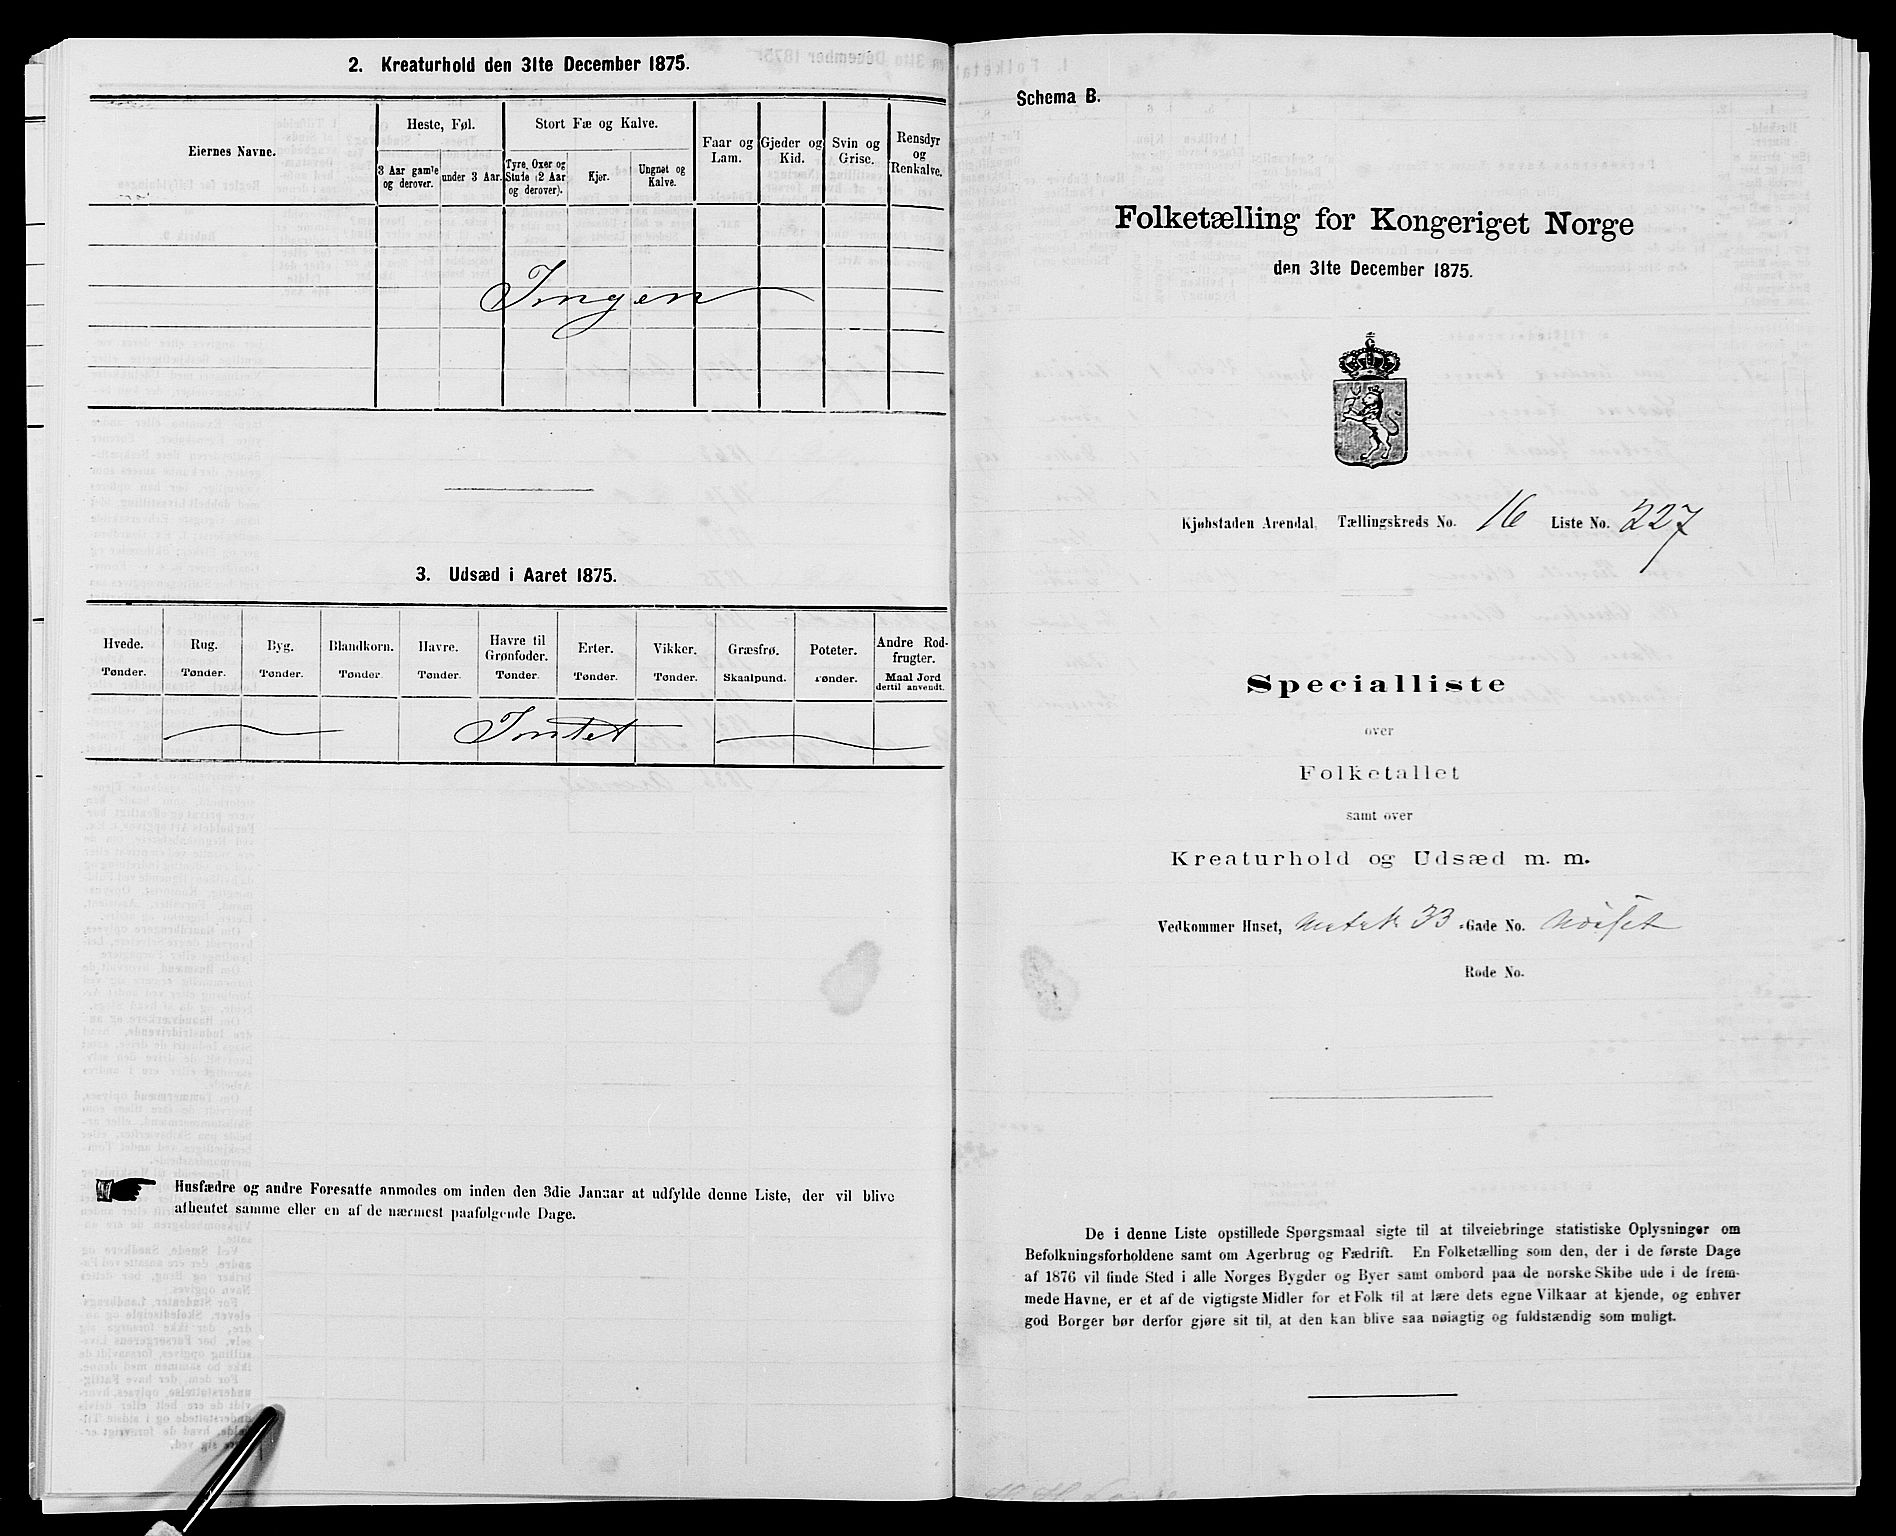 2. Kreaturhold den 31te December 1875.
Eiernes Navne.
Heste, Føl.
3 Aar gamle og derover.
under 3 Aar.
Stort Fæ og Kalve.
Tyre, Oxer og Stude (2 Aar og derover).
Kjør.
Ungnøt og Kalve.
Faar og Lam.
Gjeder og Kid.
Svin og Grise.
Rensdyr og Renkalve.
Ingen
3. Udsæd i Aaret 1875.
Hvede. Tønder.
Rug. Tønder.
Byg. Tønder.
Blandkorn. Tønder.
Havre. Tønder.
Havre til Grønfoder. Tønder.
Erter. Tønder.
Vikker. Tønder.
Græsfrø. Skaalpund.
Poteter. Tønder.
Andre Rodfrugter. Maal Jord dertil anvendt.
Intet
Husfædre og andre Foresatte anmodes om inden den 3die Januar at udfylde denne Liste, der vil blive
afhentet samme eller en af de nærmest paafølgende Dage.
Schema B.
Folketælling for Kongeriget Norge
den 31te December 1875.
Kjøbstaden Arendal, Tællingskreds No. 16 Liste No. 227
Specialliste
over
Folketallet
samt over
Kreaturhold og Udsæd m. m.
Vedkommer Huset, Matr. 33 -Gade No.
Rode No.
De i denne Liste opstillede Spørgsmaal sigte til at tilveiebringe statistiske Oplysninger om
Befolkningsforholdene samt om Agerbrug og Fædrift. En Folketælling som den, der i de første Dage
af 1876 vil finde Sted i alle Norges Bygder og Byer samt ombord paa de norske Skibe ude i de frem-
mede Havne, er et af de vigtigste Midler for et Folk til at lære dets egne Vilkaar at kjende, og enhver
god Borger bør derfor gjøre sit til, at den kan blive saa nøiagtig og fuldstændig som muligt.